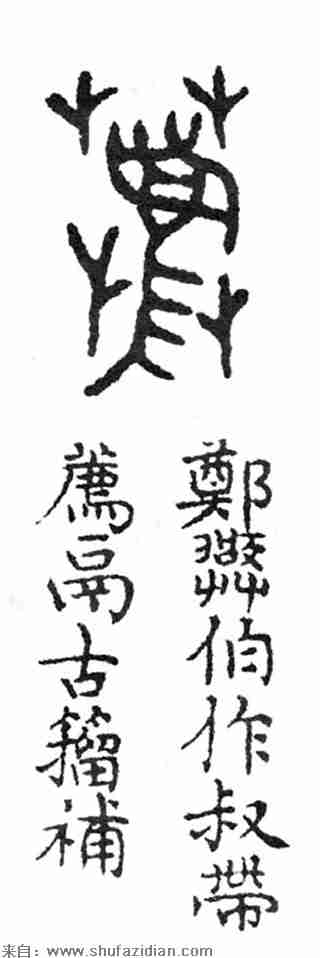 薦
鄭伯作叔帶
薦鬲古籀補
来自：www.shufazidian.com